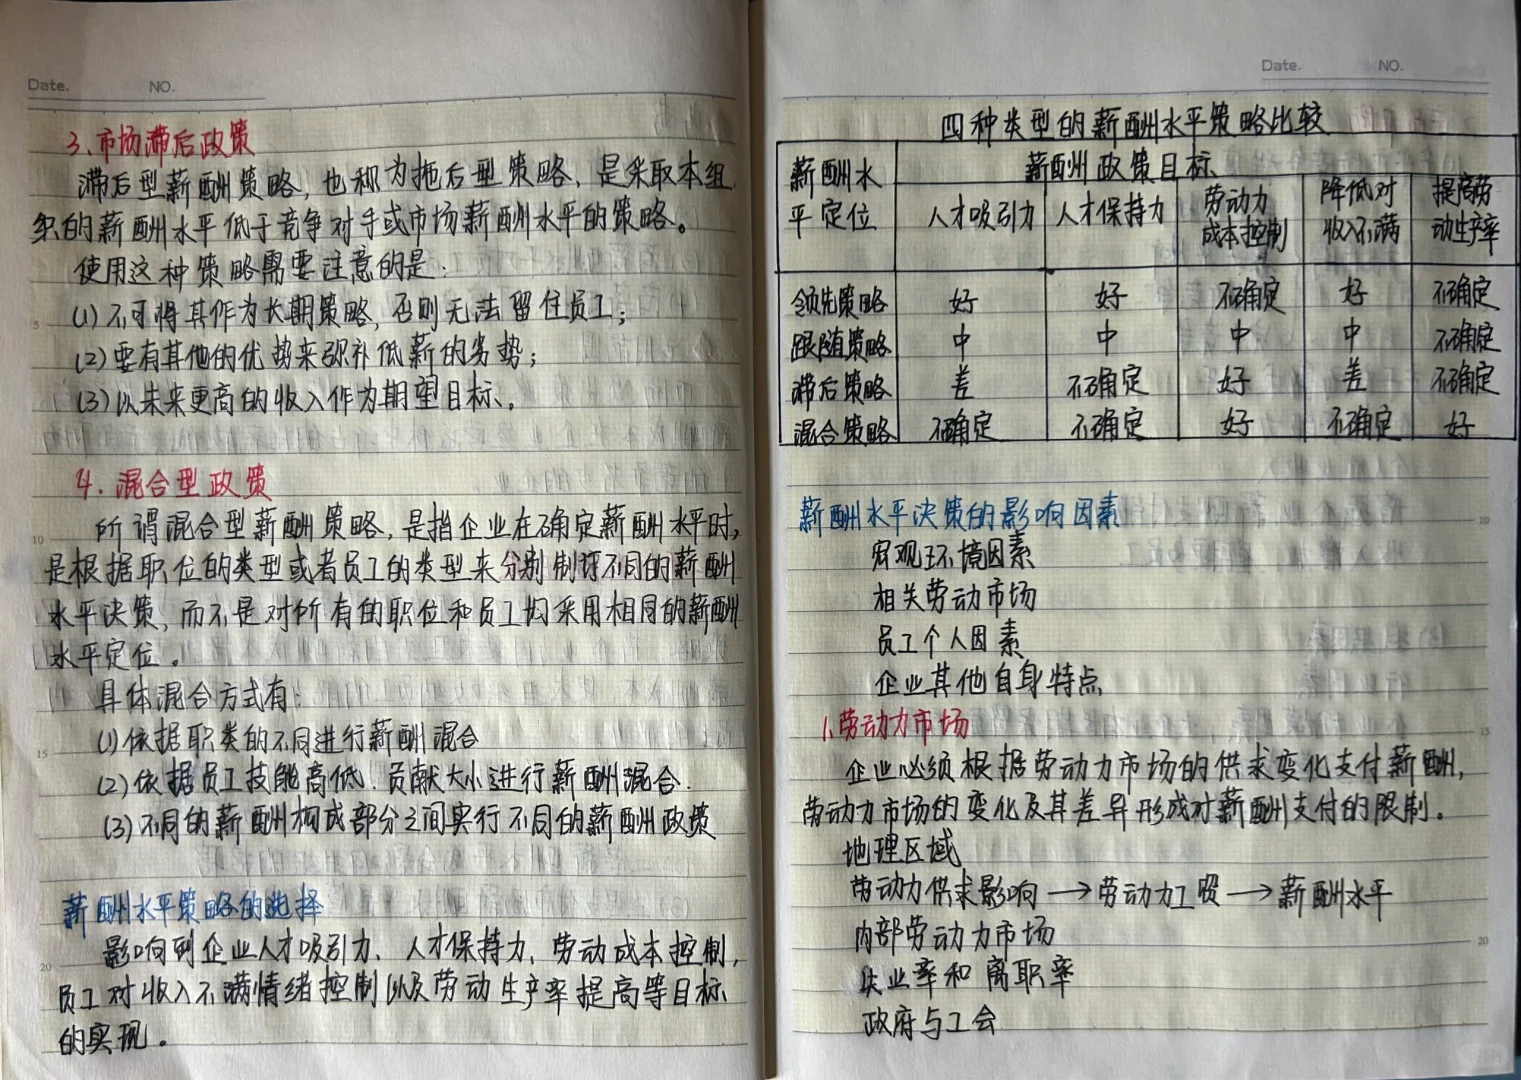 Date.
NO.
3.市场滞后政策
滞后型薪酬策略，也称为拖后型策略，是采取本组
织的薪酬水平低于竞争对手或市场薪酬水平的策略。
使用这种策略需要注意的是：
(1)不可将其作为长期策略，否则无法留住员工；
(2)要有其他的优势来弥补低薪的劣势；
(3)以未来更高的收入作为期望目标。
4.混合型政策
所谓混合型薪酬策略，是指企业在确定薪酬水平时，
是根据职位的类型或者员工的类型来分别制订不同的薪酬
水平决策，而不是对所有的职位和员工均采用相同的薪酬
水平定位。
具体混合方式有：
(1)依据职类的不同进行薪酬混合
(2)依据员工技能高低、贡献大小进行薪酬混合.
(3)不同的薪酬构成部分之间实行不同的薪酬政策
薪酬水平策略的选择
影响到企业人才吸引力、人才保持力、劳动成本控制，
员工对收入不满情绪控制以及劳动生产率提高等目标
的实现。
Date.
NO.
四种类型的薪酬水平策略比较
薪酬水平定位 薪酬政策目标
人才吸引力 人才保持力 劳动力成本控制 降低对收入不满 提高劳动生产率
领先策略 好 好 不确定 好 不确定
跟随策略 中 中 中 中 不确定
滞后策略 差 不确定 好 差 不确定
混合策略 不确定 不确定 好 不确定 好
薪酬水平决策的影响因素
宏观环境因素
相关劳动市场
员工个人因素
企业其他自身特点
1.劳动力市场
企业必须根据劳动力市场的供求变化支付薪酬，
劳动力市场的变化及其差异形成对薪酬支付的限制。
地理区域
劳动力供求影响→劳动力工资→薪酬水平
内部劳动力市场
失业率和离职率
政府与工会